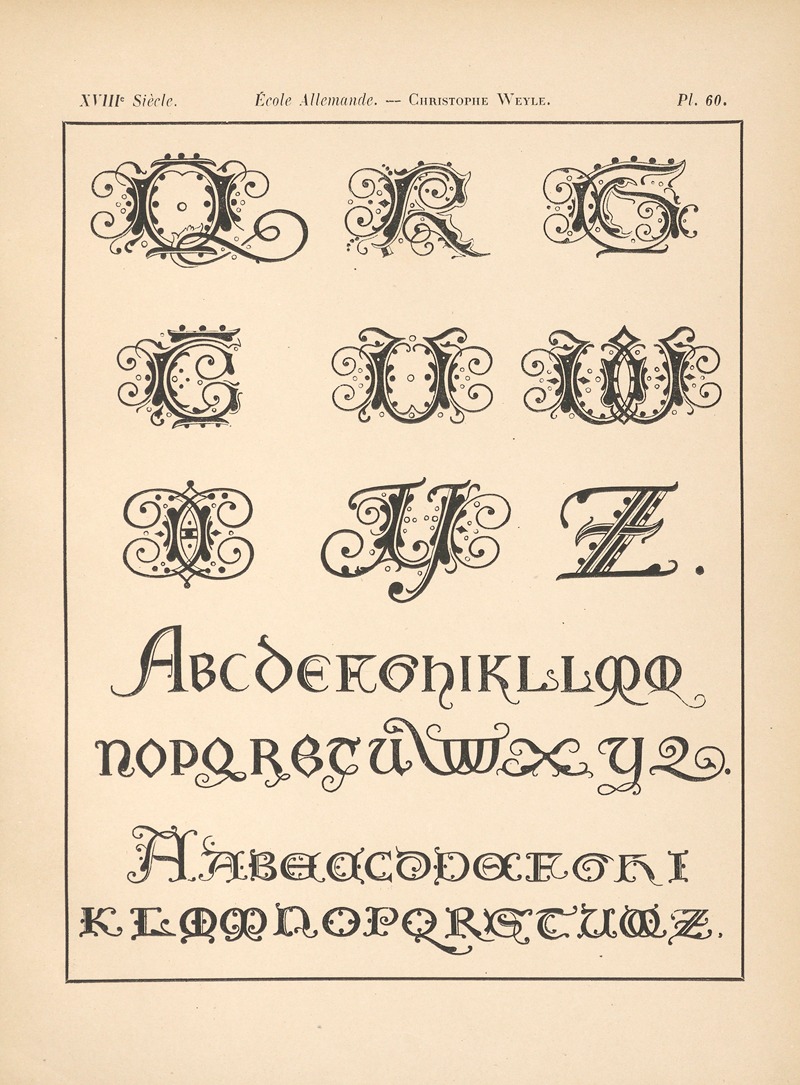 XVIIIe Siècle. École Allemande. — Christophe Weyle. Pl. 60.
Q R S
T U W
X Y Z.
ABCDEFGHIKLLMM
NOPQRSTUWXYZ.
AABECCDDEFGHI
KLMMNOPQRSTUWZ.